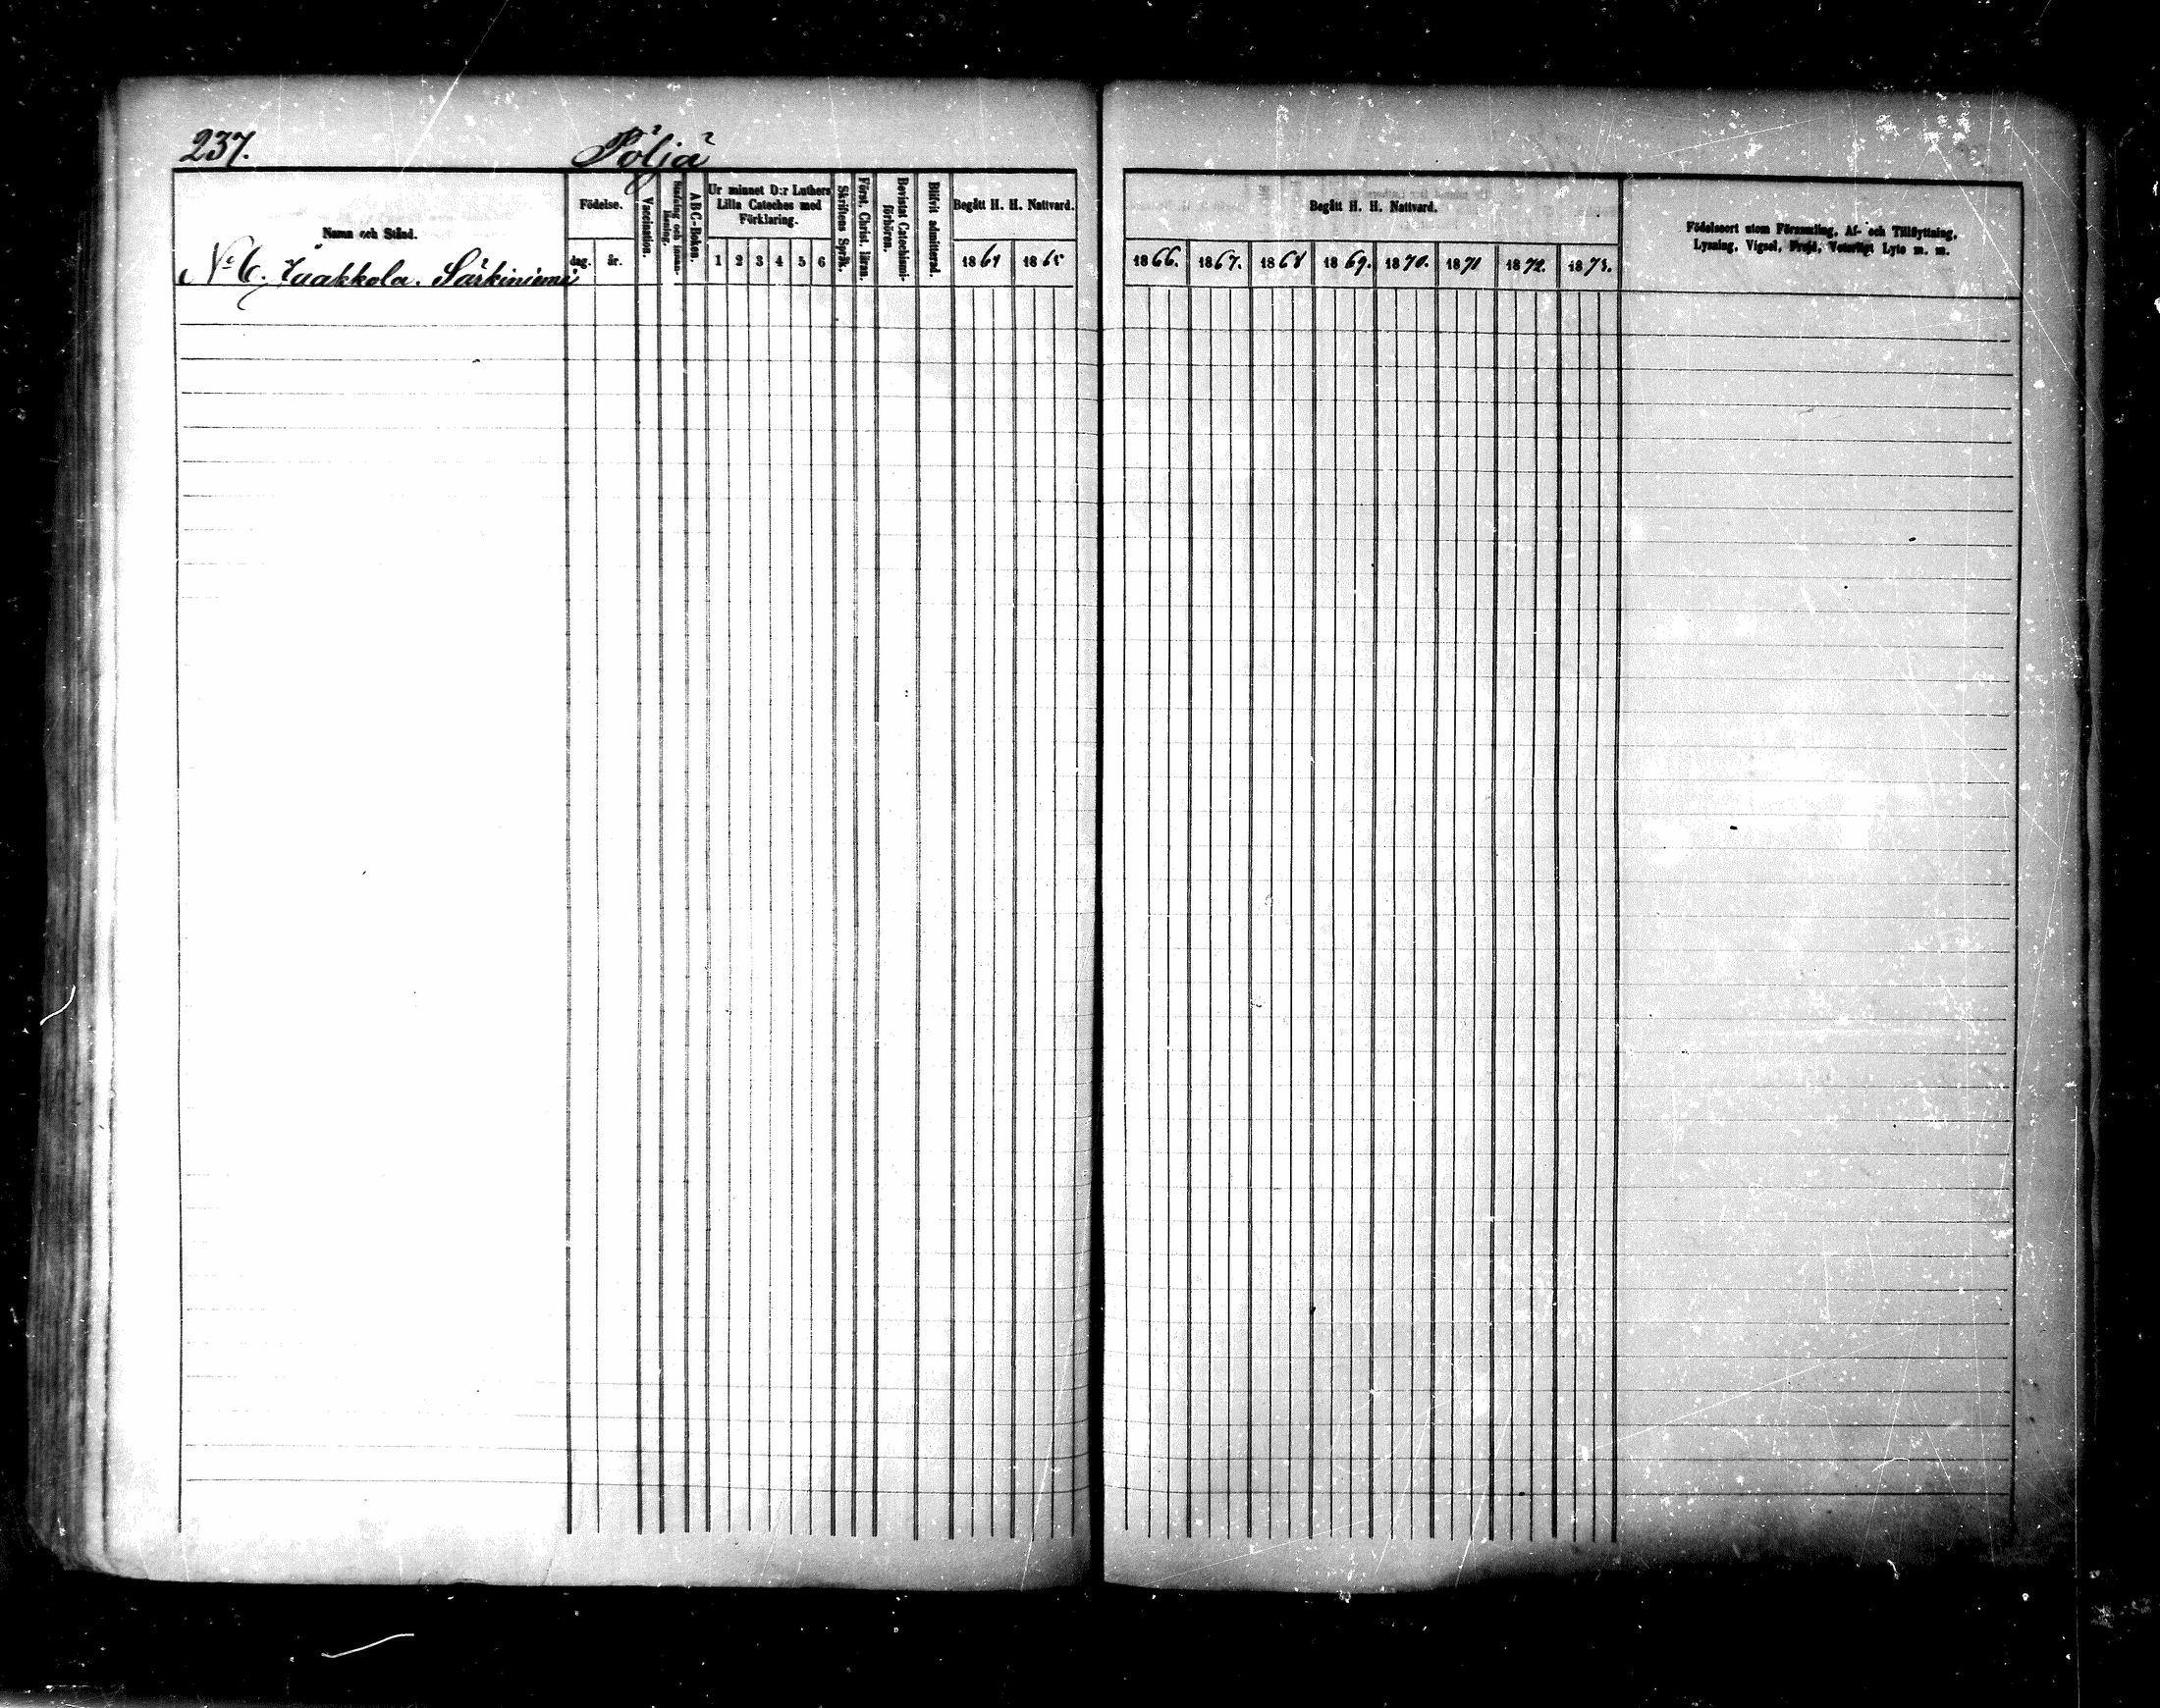 237. Pöljä
Namn och Stånd.
No 6. Jaakkola. Särkiniemi
Födelse.
dag. år.
Vaccination.
Stafning och innan-läsning.
ABC-Boken.
Ur minnet D:r Luthers
Lilla Cateches med
Förklaring.
1 2 3 4 5 6
Skriftens Språk.
Först. Christ. läran.
Bevistat Catechismi-
förhören.
Blifvit admitterad.
Begått H. H. Nattvard.
1864 1865
Begått H. H. Nattvard.
1866. 1867. 1868 1869. 1870. 1871 1872. 1873.
Födelseort utom Församling, Af- och Tillflyttning,
Lysning, Vigsel, Frejd, Veterligt Lyte m. m.